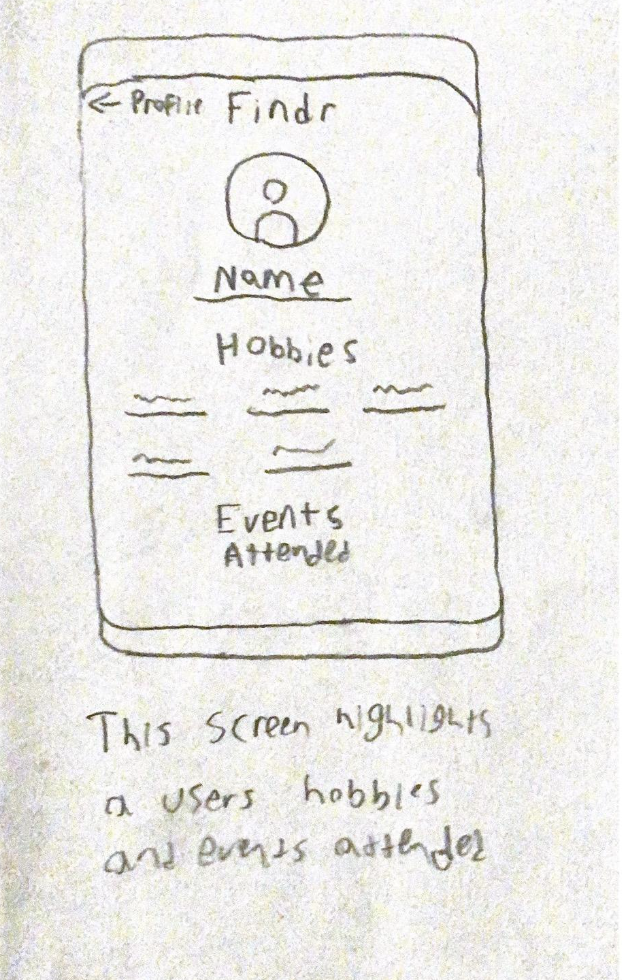 ← Profile Findr
Name
Hobbies
Events
Attended
This screen highlights
a users hobbies
and events attended